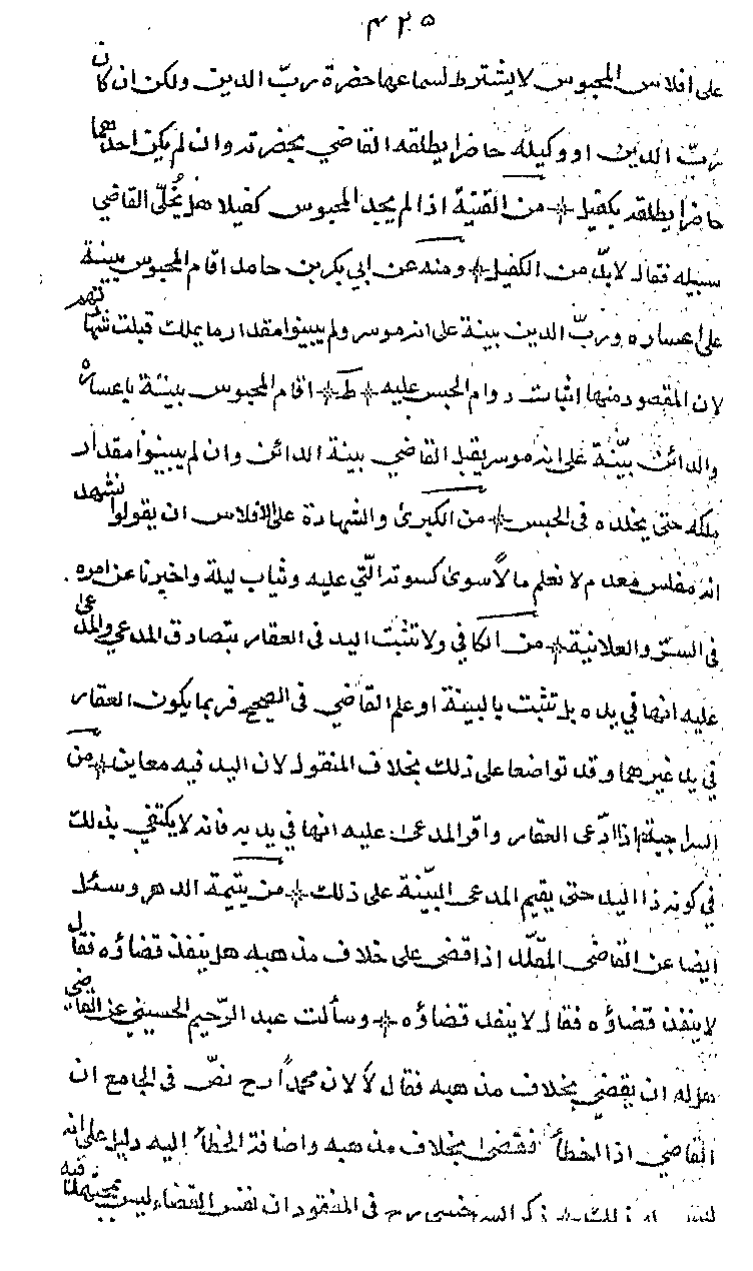 ٤٢٥
على افلاس المحبوس لا يشترط لسماعها حضرة ربّ الدين ولكن ان كان
ربّ الدين او وكيله حاضرا يطلقه القاضي بحضرته وان لم يكن احدهما
حاضرا يطلقه بكفيل من القنية اذا لم يجد المحبوس كفيلا هل يُخلّى القاضي
سبيله فقال لا بدّ من الكفيل ومنه عن ابي بكر بن حامد اقام المحبوس بينة
على اعساره وربّ الدين بينة على انه موسر ولم يبينوا مقدار ما يملك قبلت شهادتهم
لان المقصود منها اثبات دوام الحبس عليه ط اقام المحبوس بينة باعساره
والدائن بيّنة على انه موسر يقبل القاضي بينة الدائن وان لم يبينوا مقدار
ملكه حتى يخلده فى الحبس من الكبرى والشهادة على الافلاس ان يقولوا نشهد
انه مفلس معدم لا نعلم مالاً سوى كسوته الّتي عليه وثياب ليلة واخبرنا عن امره
فى السرّ والعلانية من الكافي ولا تثبت اليد فى العقار بتصادق المدعي والمدعى
عليه انها في يده بل تثبت بالبينة او علم القاضي فى الصحيح فربما يكون العقار
في يد غيرهما وقد تواضعا على ذلك بخلاف المنقول لان اليد فيه معاين من
السراجية اذا ادّعى العقار واقر المدعى عليه انها في يديه فانه لا يكتفي بذلك
في كونه ذا اليد حتى يقيم المدعى البيّنة على ذلك من يتيمة الدهر وسئل
ايضا عن القاضي المقلّد اذا قضى على خلاف مذهبه هل ينفذ قضاؤه فقال
لا ينفذ قضاؤه فقال لا ينفذ قضاؤه وسألت عبد الرّحيم الحسيني عن القاضي
هل له ان يقضي بخلاف مذهبه فقال لا لان محمداً رح نصّ فى الجامع ان
القاضي اذا اخطأ فقضى بخلاف مذهبه واضافة الخطأ اليه دليل على انه
ليس له ذلك ذكر السرخسي رح فى المفقود ان نفس القضاء ليس بمجتهد فيه